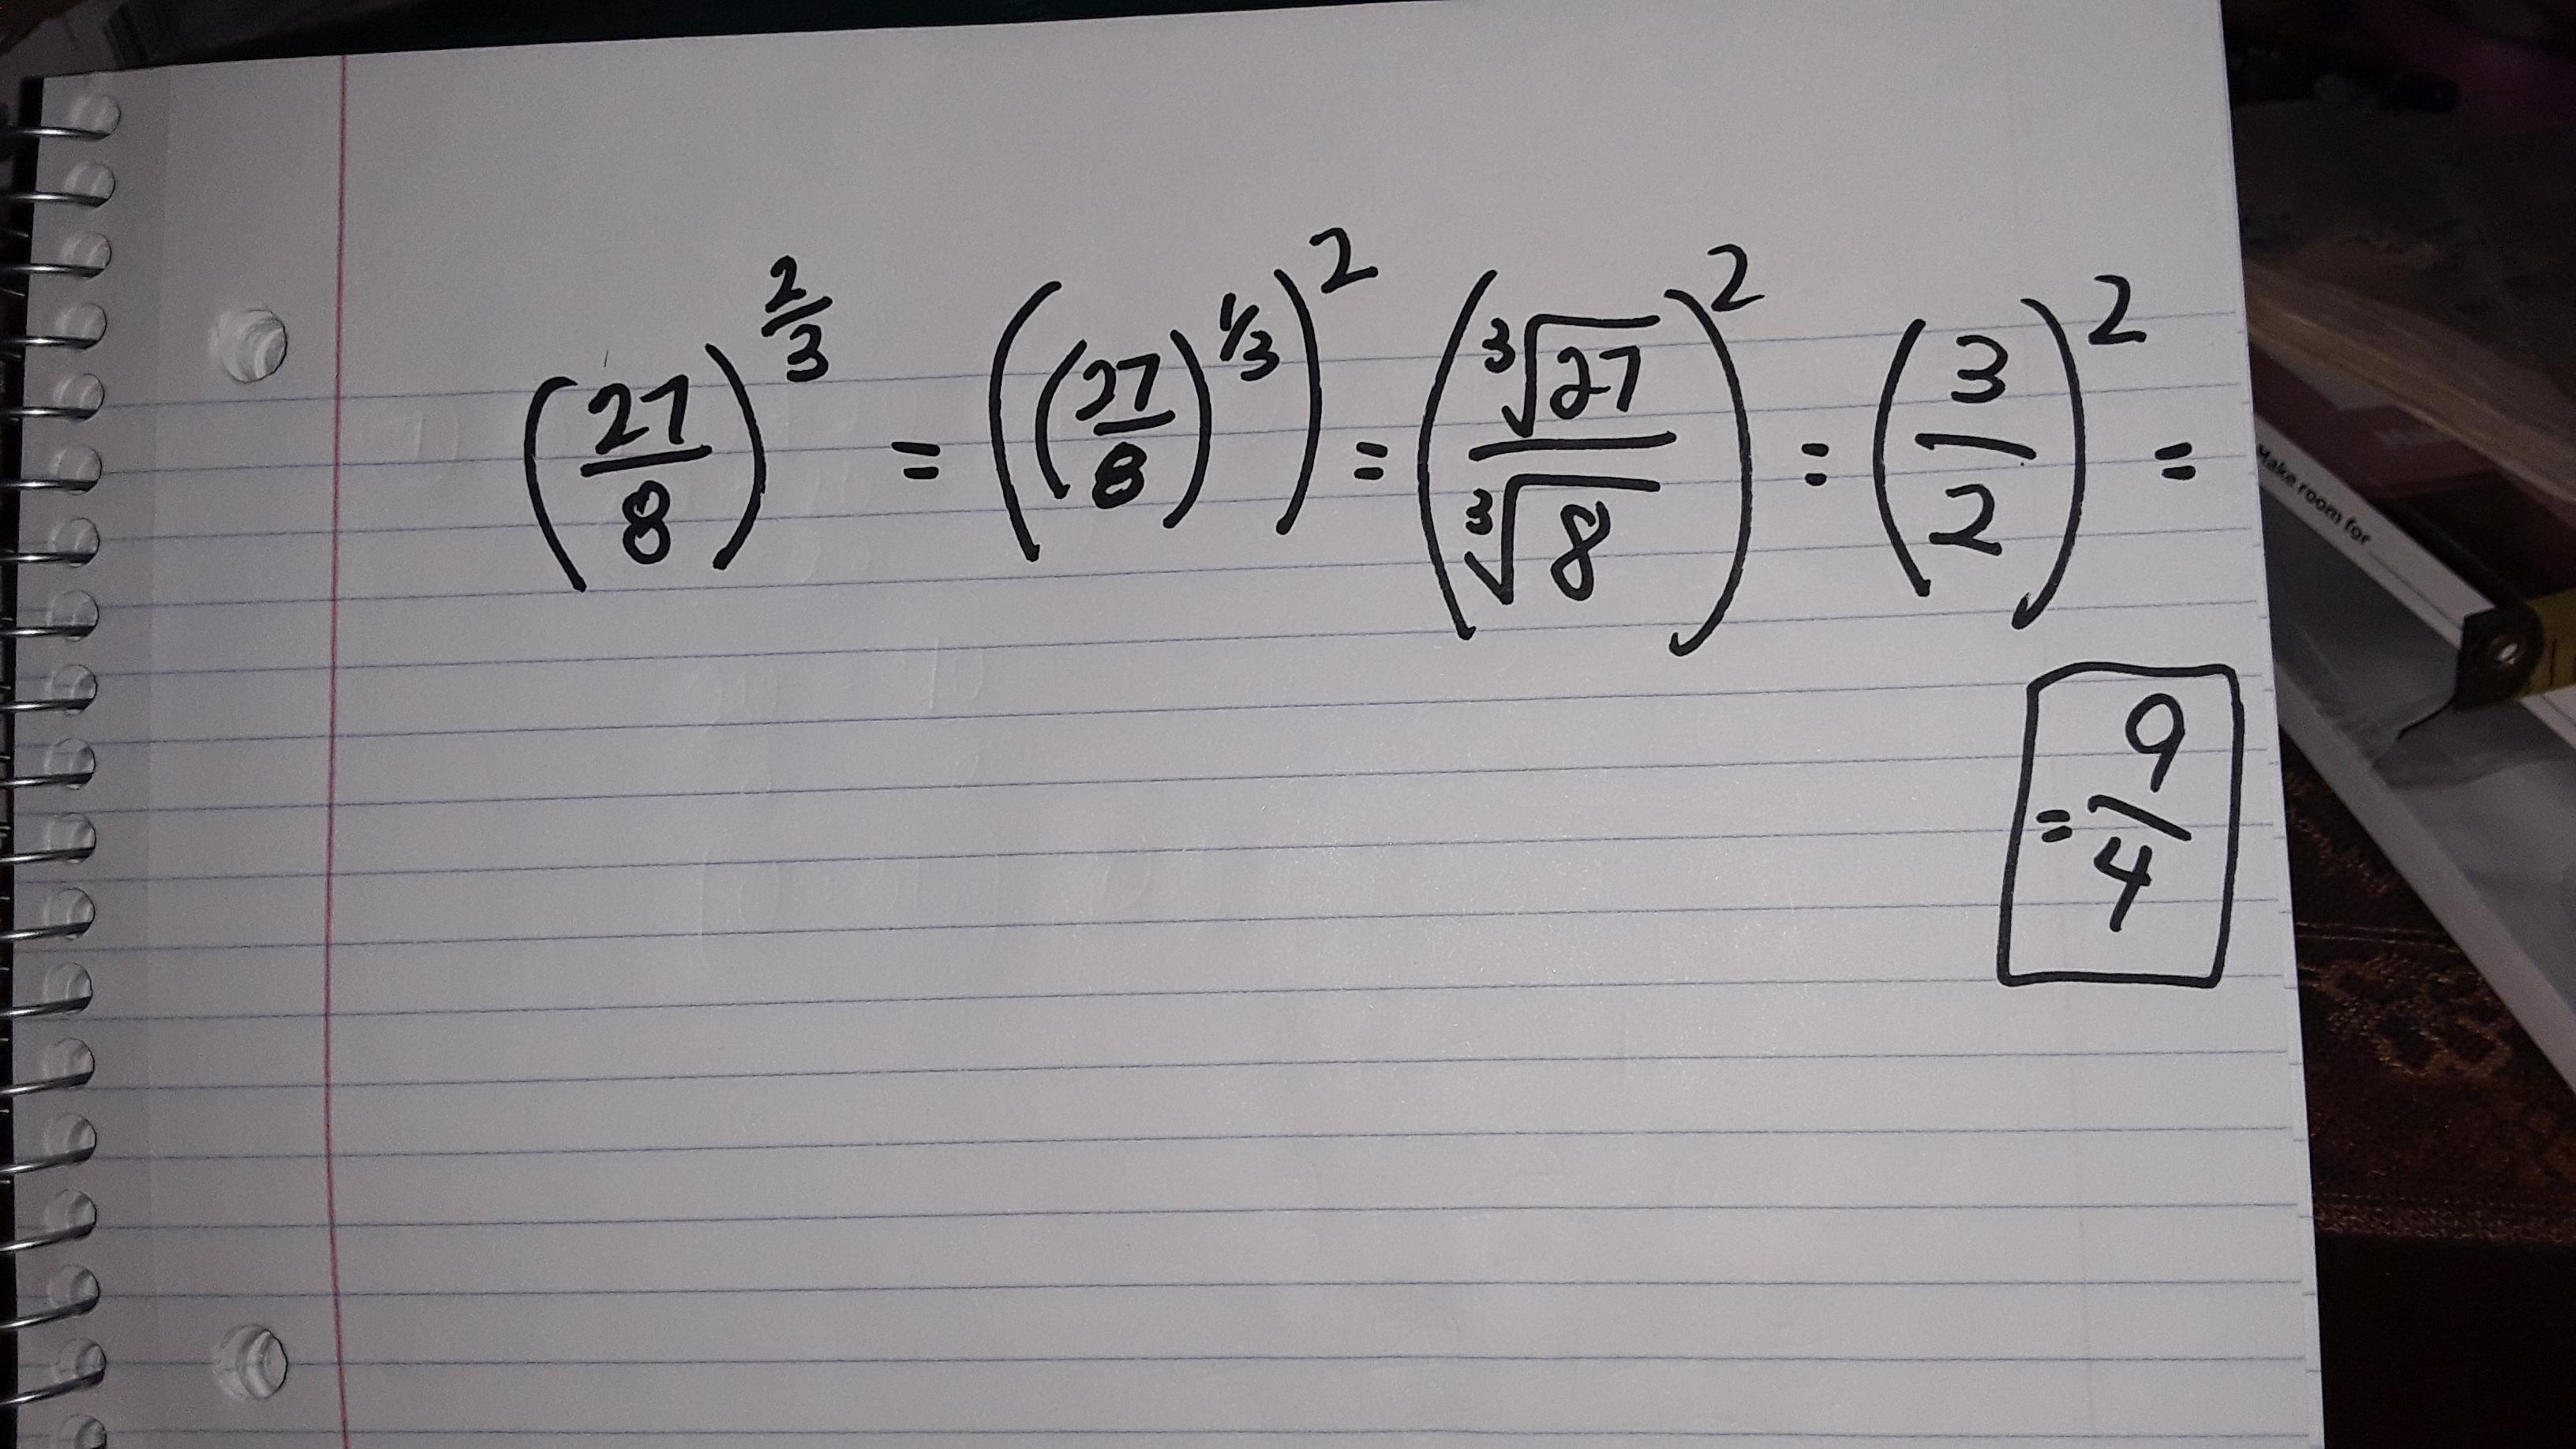 (27/8)^(2/3) = ((27/8)^(1/3))^2 = (∛27/∛8)^2 = (3/2)^2 =
= 9/4
Make room for